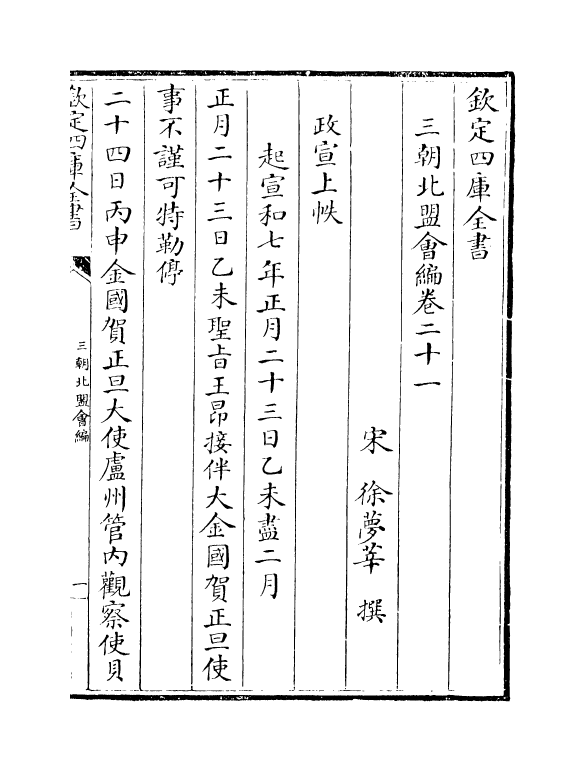 欽定四庫全書
三朝北盟會編卷二十一
宋 徐夢莘 撰
政宣上帙
起宣和七年正月二十三日乙未盡二月
正月二十三日乙未聖旨王昂接伴大金國賀正旦使
事不謹可特勒停
二十四日丙申金國賀正旦大使盧州管內觀察使貝
欽定四庫全書
三朝北盟會編
一